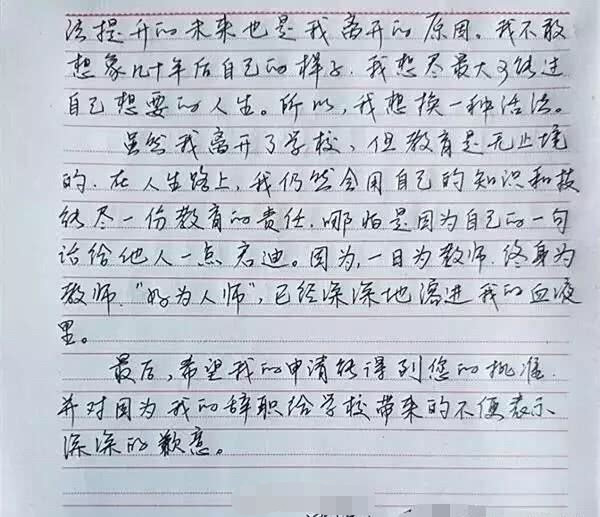 法提升的未来也是我离开的原因。我不敢
想象几十年后自己的样子,我想尽最大了能过
自己想要的人生。所以,我想换一种活法。
虽然我离开了学校,但教育是无止境
的.在人生路上,我仍然会用自己的知识和技
能尽一份教育的责任.哪怕是因为自己的一句
话给他人一点启迪。因为,一日为教师.终身为
教师."好为人师",已经深深地溶进我的血液
里。
最后,希望我的申请能得到您的批准.
并对因为我的辞职给学校带来的不便表示
深深的歉意。